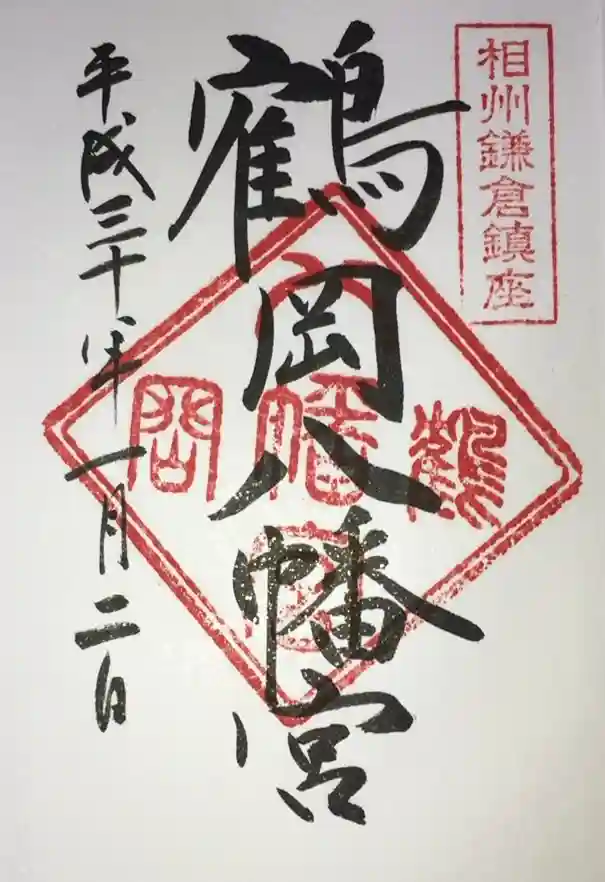 相州鎌倉鎮座
鶴岡八幡宮
鶴
八幡宮
岡
平成三十年一月二日